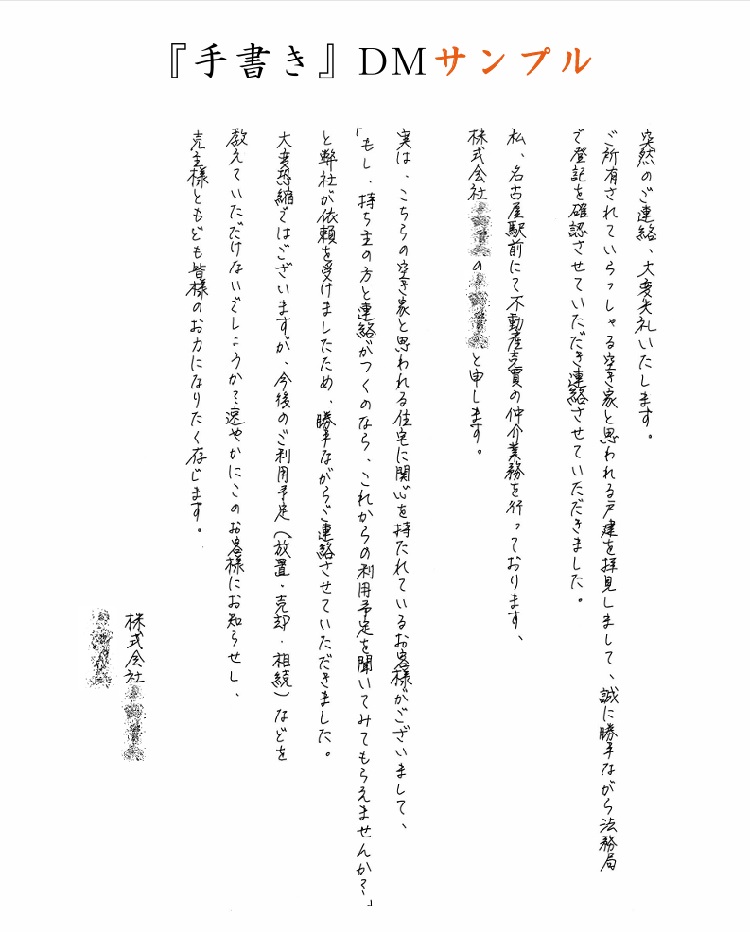 『手書き』DMサンプル
突然のご連絡、大変失礼いたします。
ご所有されていらっしゃる空き家と思われる戸建を拝見しまして、誠に勝手ながら法務局
で登記を確認させていただき連絡させていただきました。
私、名古屋駅前にて不動産売買の仲介業務を行っております、
株式会社 の と申します。
実は、こちらの空き家と思われる住宅に関心を持たれているお客様がございまして、
「もし、持ち主の方と連絡がつくのなら、これからの利用予定を聞いてみてもらえませんか?」
と弊社が依頼を受けましたため、勝手ながらご連絡させていただきました。
大変恐縮ではございますが、今後のご利用予定(放置・売却・相続)などを
教えていただけないでしょうか?速やかにこのお客様にお知らせし、
売主様ともども皆様のお力になりたく存じます。
株式会社